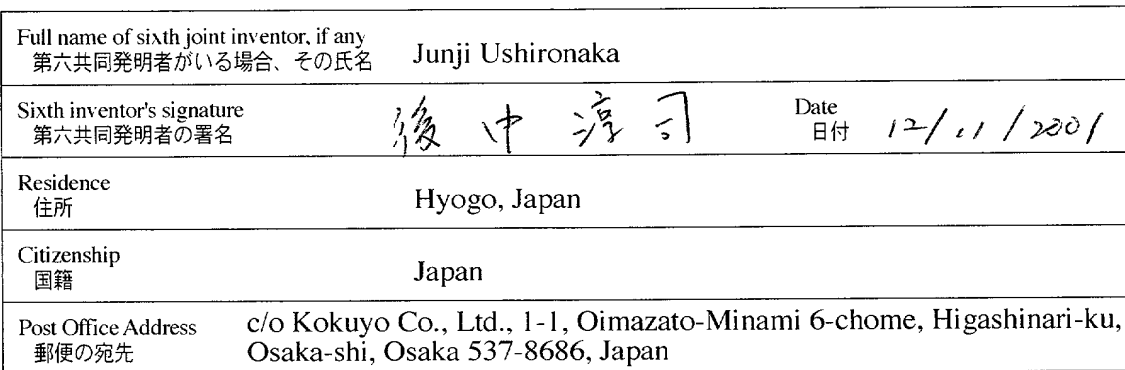 Full name of sixth joint inventor, if any
第六共同発明者がいる場合、その氏名
Junji Ushironaka
Sixth inventor's signature
第六共同発明者の署名
後中 淳司
Date
日付
12/11/2001
Residence
住所
Hyogo, Japan
Citizenship
国籍
Japan
Post Office Address
郵便の宛先
c/o Kokuyo Co., Ltd., 1-1, Oimazato-Minami 6-chome, Higashinari-ku,
Osaka-shi, Osaka 537-8686, Japan